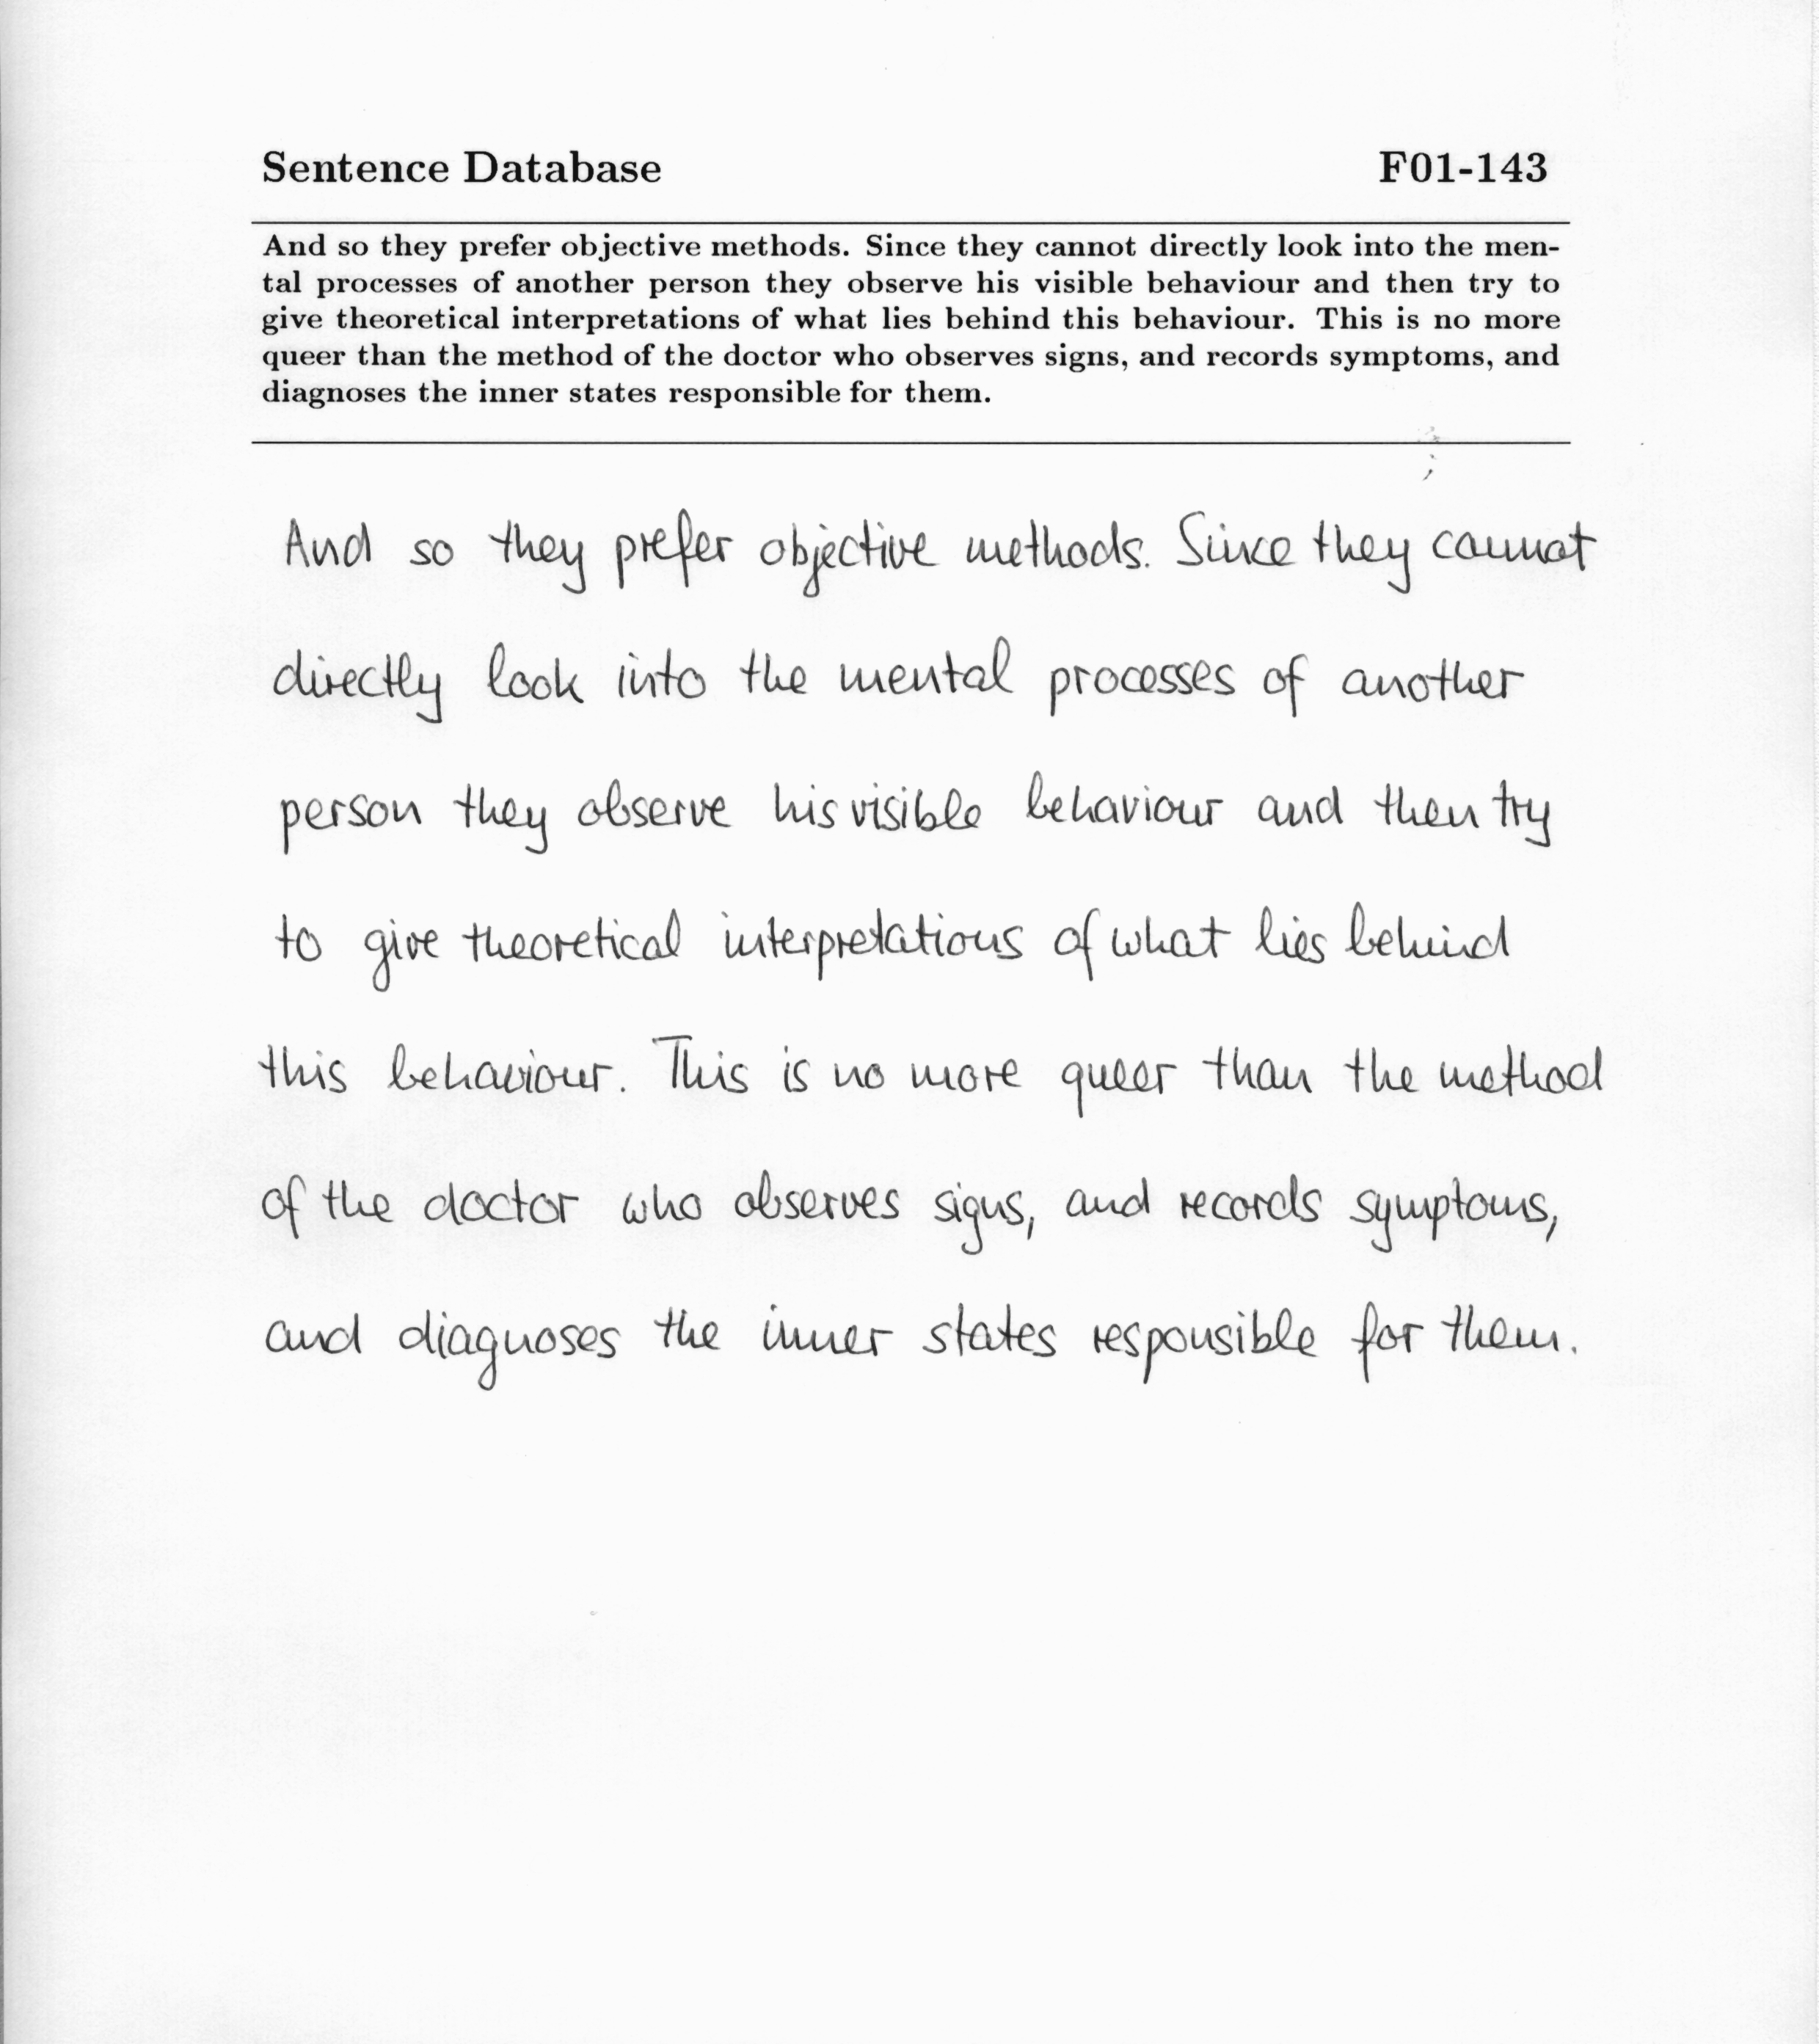 Sentence Database F01-143
And so they prefer objective methods. Since they cannot directly look into the men-
tal processes of another person they observe his visible behaviour and then try to
give theoretical interpretations of what lies behind this behaviour. This is no more
queer than the method of the doctor who observes signs, and records symptoms, and
diagnoses the inner states responsible for them.
And so they prefer objective methods. Since they cannot
directly look into the mental processes of another
person they observe his visible behaviour and then try
to give theoretical interpretations of what lies behind
this behaviour. This is no more queer than the method
of the doctor who observes signs, and records symptoms,
and diagnoses the inner states responsible for them.